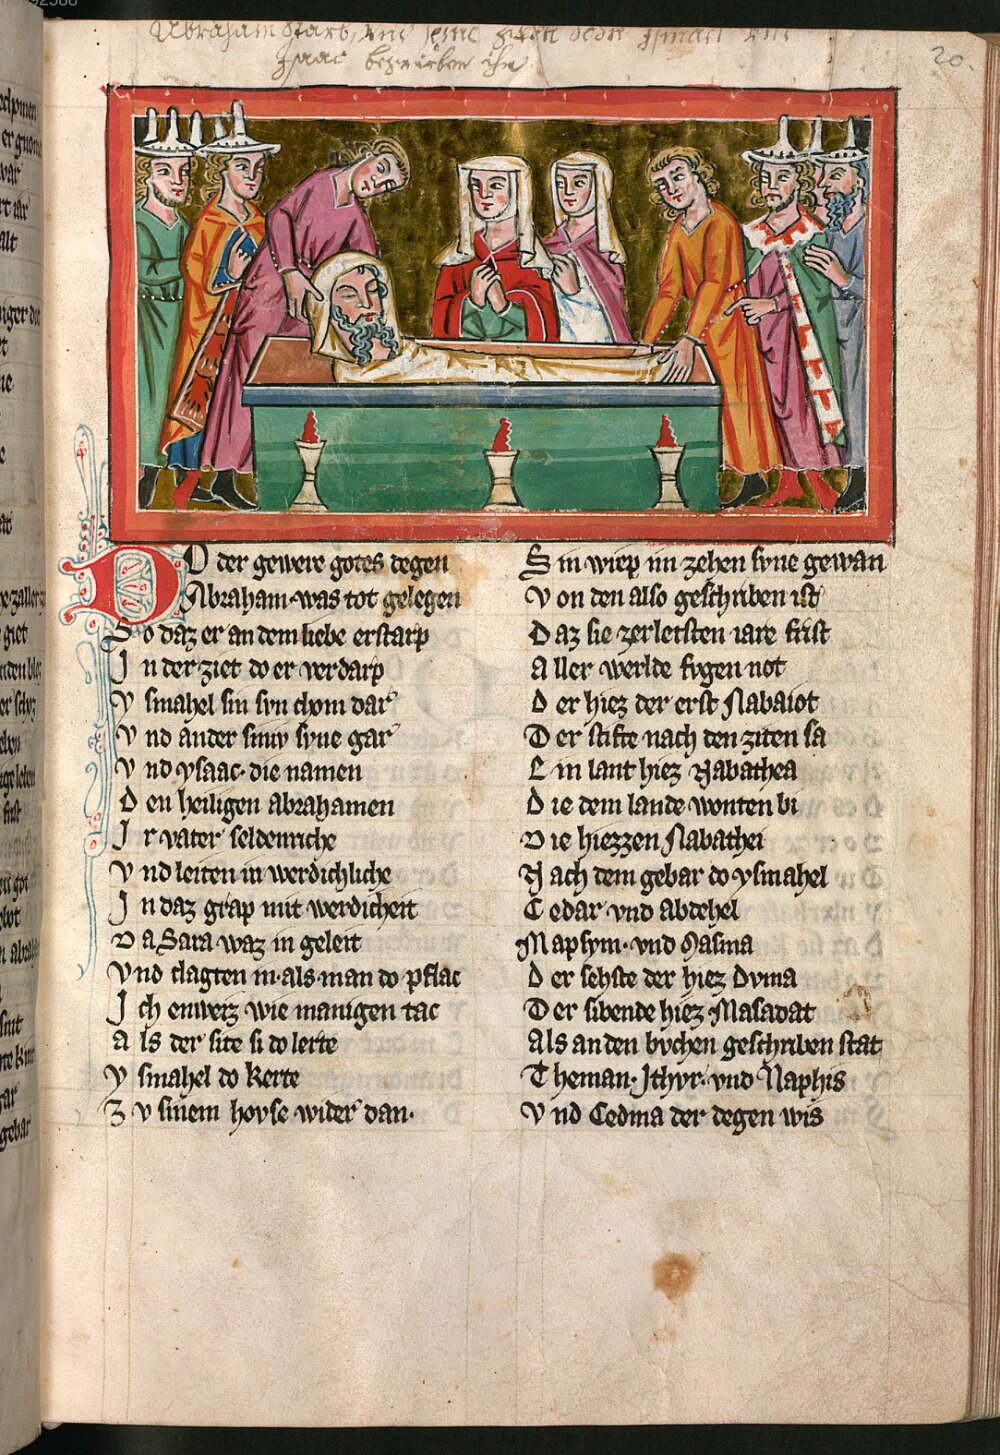 Abraham starb, und seine
Isaac begrieben ihn
20.
DO der gewere gotes degen
Abraham·was tot gelegen
So daz er an dem liebe erstarp
In der ziet do er verdarp
Ysmahel sin svn chom dar
Vnd ander siniv svne gar
Vnd ysaac·die namen
Den heiligen abrahamen
Ir vater seldenriche
Vnd leiten in werdichliche
In daz grap mit werdicheit
Da Sara waz in geleit
Vnd clagten in·als man do pflac
Ich enweiz wie manigen tac
Als der site si do lerte
Ysmahel do kerte
Zv sinem hovse wider dan·
Sin wiep im zehen svne gewan
Von den also geschriben ist
Daz sie zerletsten iare frist
Aller werlde fvgen not
Der hiez der erst Nabaiot
Der stifte nach den ziten sa
Ein lant hiez Nabathea
Die dem lande wonten bi
Die hiezzen Nabathei
Nach dem gebar do ysmahel
Cedar vnd abdehel
Mapsym·vnd Masma
Der sehste der hiez Dvma
Der sibende hiez Masadat
Als an den bvchen geschriben stat
Theman·Ithvr·vnd Naphis
Vnd Cedma der degen wis